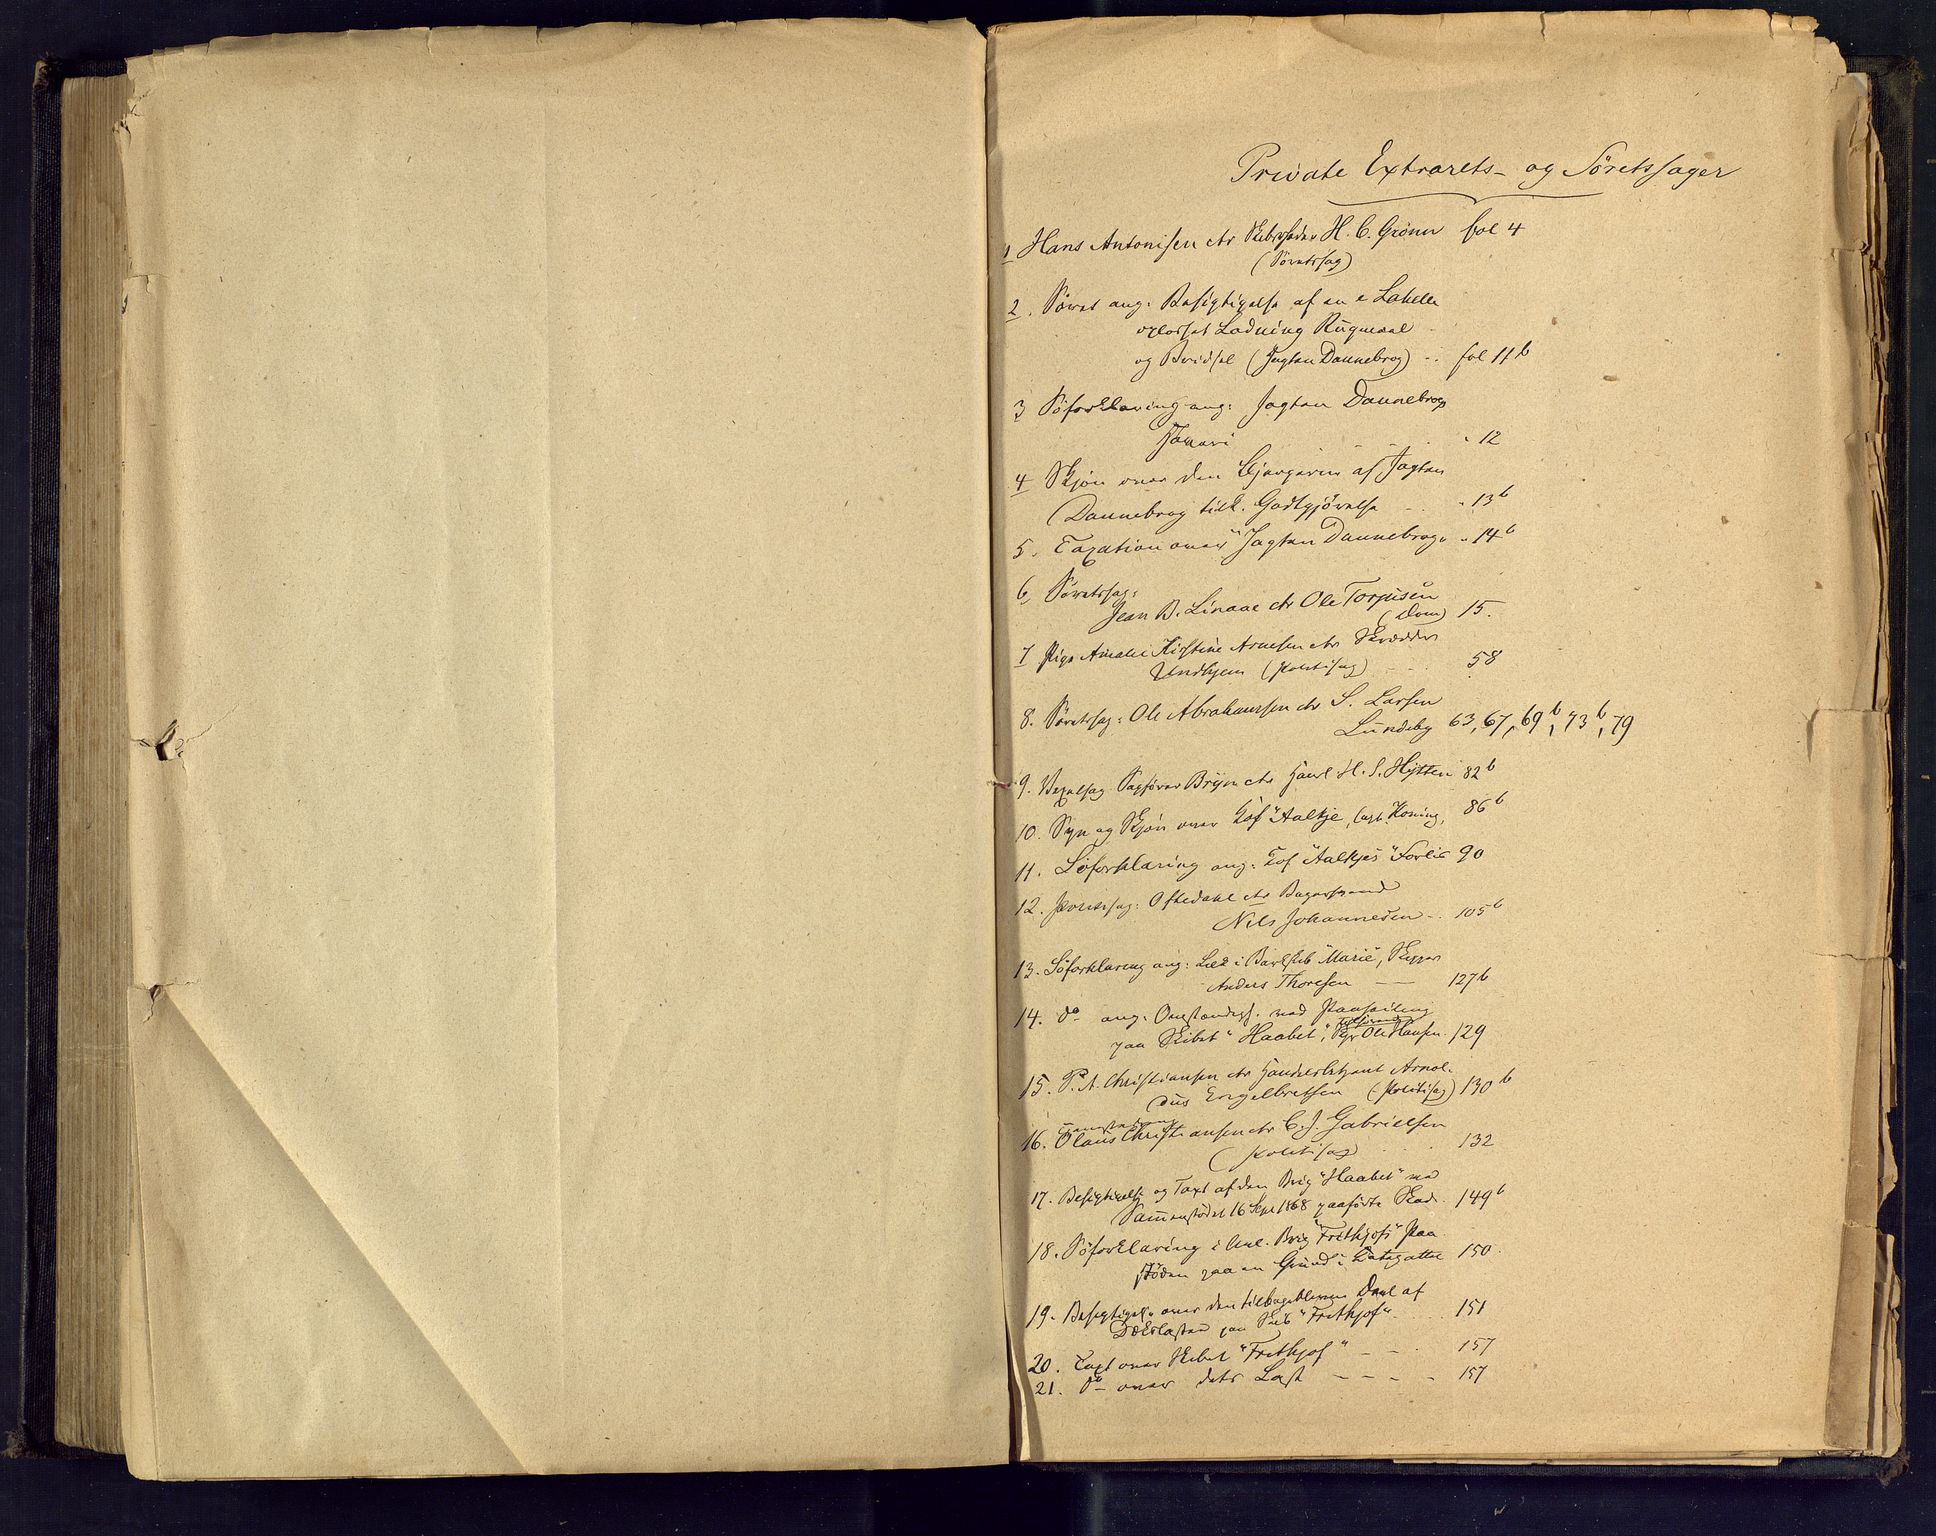 Private Extrarets- og Söretssager
1 Hans Antonisen ctr Skibsreder H. C. Grönn fol 4
(Söretssag)
2. Söret ang: Besigtigelse af en
oplosset Ladning Rugmeel
og Brödsel (Jagten Dannebrog) - fol 11 b
3 Söforklaring ang: Jagten Dannebrogs
Havari " 12
4 Skjön over den Bjergerne af Jagten
Dannebrog tilk. Godtgjörelse " 13 b
5. Taxation over "Jagten Dannebrog" " 14 b
6, Söretssag:
Jean B. Linaae ctr Ole Torjusen
(Dom) 15.
7 Pige Amalie Kirstine Arnesen ctr Skrædder
Undhjem (Politisag) 58
8. Söretssag: Ole Abrahamsen ctr S. Larsen
Lundeby 63, 67, 69 b, 73 b, 79
9. Vexelsag Sagförer Bryn ctr Handl H. S. Hytten 82 b
10. Syn og Skjön over Kof "Aaltje, Capt. Koning, 86 b
11. Söforklaring ang: Kof "Aaltjes" Forlis 90
12. Oftedahl ctr Bagersvend
Nils Johannesen - 105 b
13. Söforklaring ang: Læk i Barkskib "Marie", Skipper
Anders Thoresen — 127 b
14. do ang: Omstændigh. med Paaseiling
paa Skibet "Haabet", Skpr Ole Hansen 129
15. P. A. Christiansen ctr Handelsbetjent Arnol-
dus Engelbretsen (Politisag) 130 b
16. Olaus Christiansen ctr C. J. Gabrielsen
(Politisag) 132
17. Besigtigelse og Taxt af den Brig "Haabet" ved
Sammenstödet 16 Sept 1868 paaförte Skade 149 b
18. Söforklaring i Anl. Brig "Frithjofs" Paa
stöden paa en Grund i Kattegattet 150
19. Besigtigelse over den tilbageblevne Deel af
Dækslasten paa Skib "Frithjof" 151
20. Taxt over Skibet "Frithjof" - - 157
21. do over dets Last - - - - 157